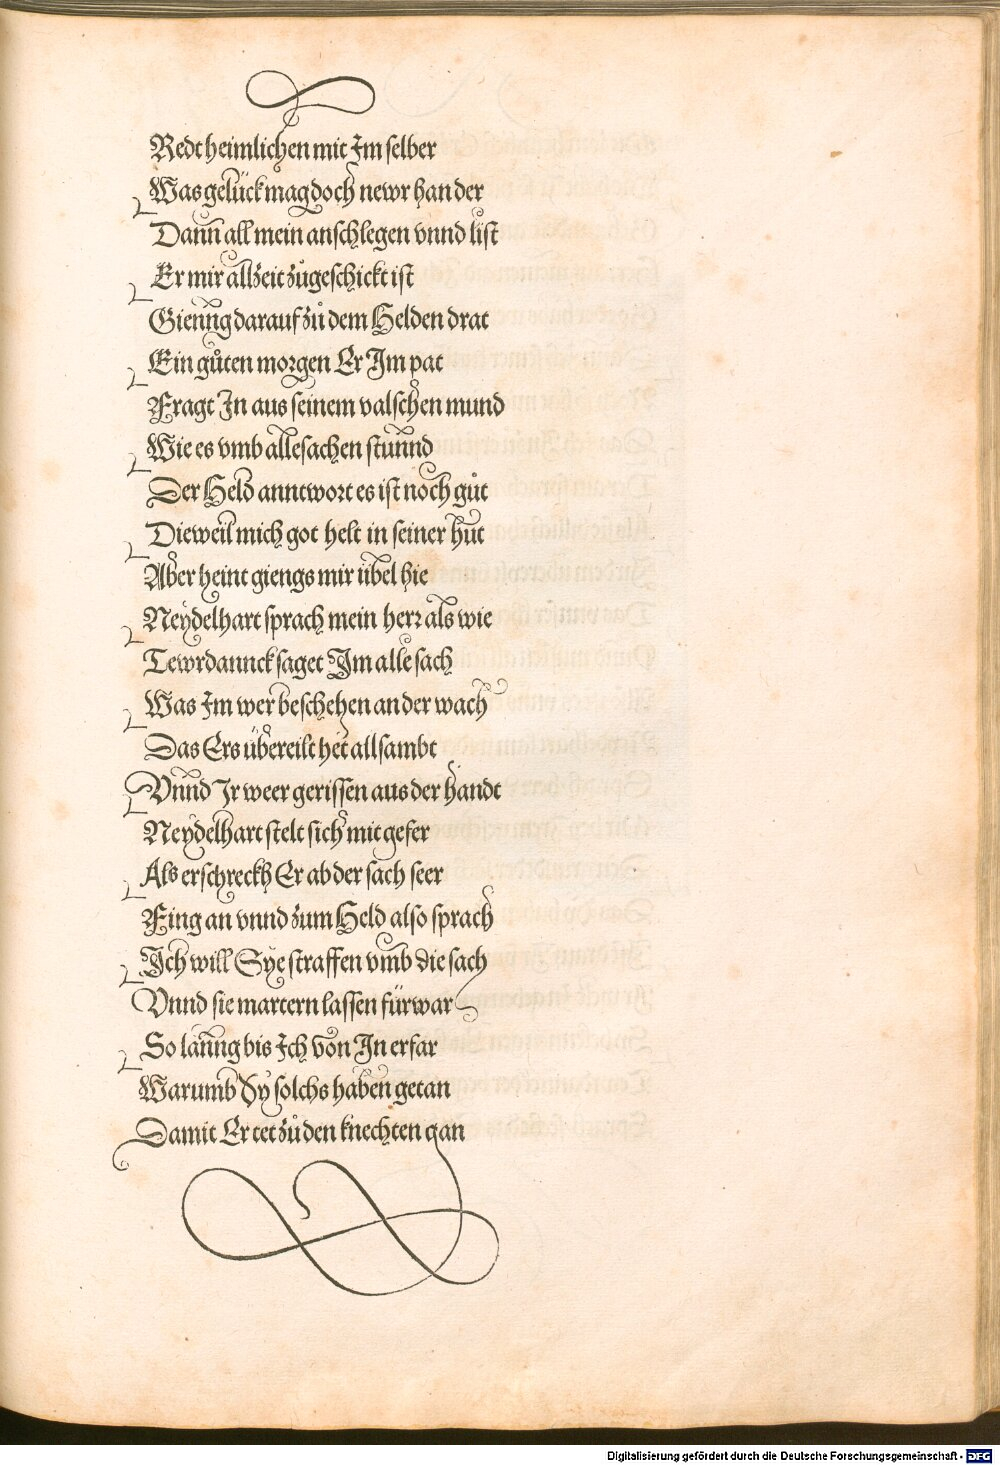 Redt heimlichen mit Im selber
Was gelück mag doch newr han der
Dann all mein anschlegen vnnd list
Er mir allzeit zůgeschickt ist
Gienng darauf zů dem Helden drat
Ein gůten morgen Er Im pat
Fragt In aus seinem valschen mund
Wie es vmb alle sachen stunnd
Der Held anntwort es ist noch gůt
Dieweil mich got helt in seiner hůt
Aber heint giengs mir übel hie
Neydelhart sprach mein herr als wie
Tewrdannck saget Im alle sach
Was Im wer beschehen an der wach
Das Ers übereilt het allsambt
Vnnd Ir weer gerissen aus der handt
Neydelhart stelt sich mit gefer
Als erschreckh Er ab der sach seer
Fing an vnnd zum Held also sprach
Ich will Sye straffen vmb die sach
Vnnd sie martern lassen fürwar
So lanng bis Ich von In erfar
Warumb Dy solchs haben getan
Damit Er tet zů den knechten gan
Digitalisierung gefördert durch die Deutsche Forschungsgemeinschaft - DFG